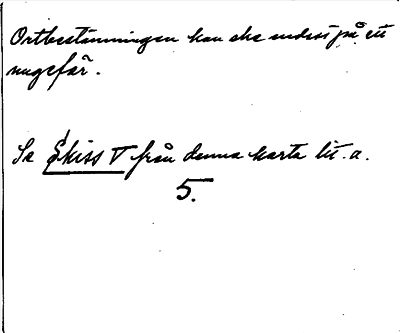 Ortbestämningen kan ske endast på ett
ungefär.
Se Skiss V från denna karta litt. a.
5.